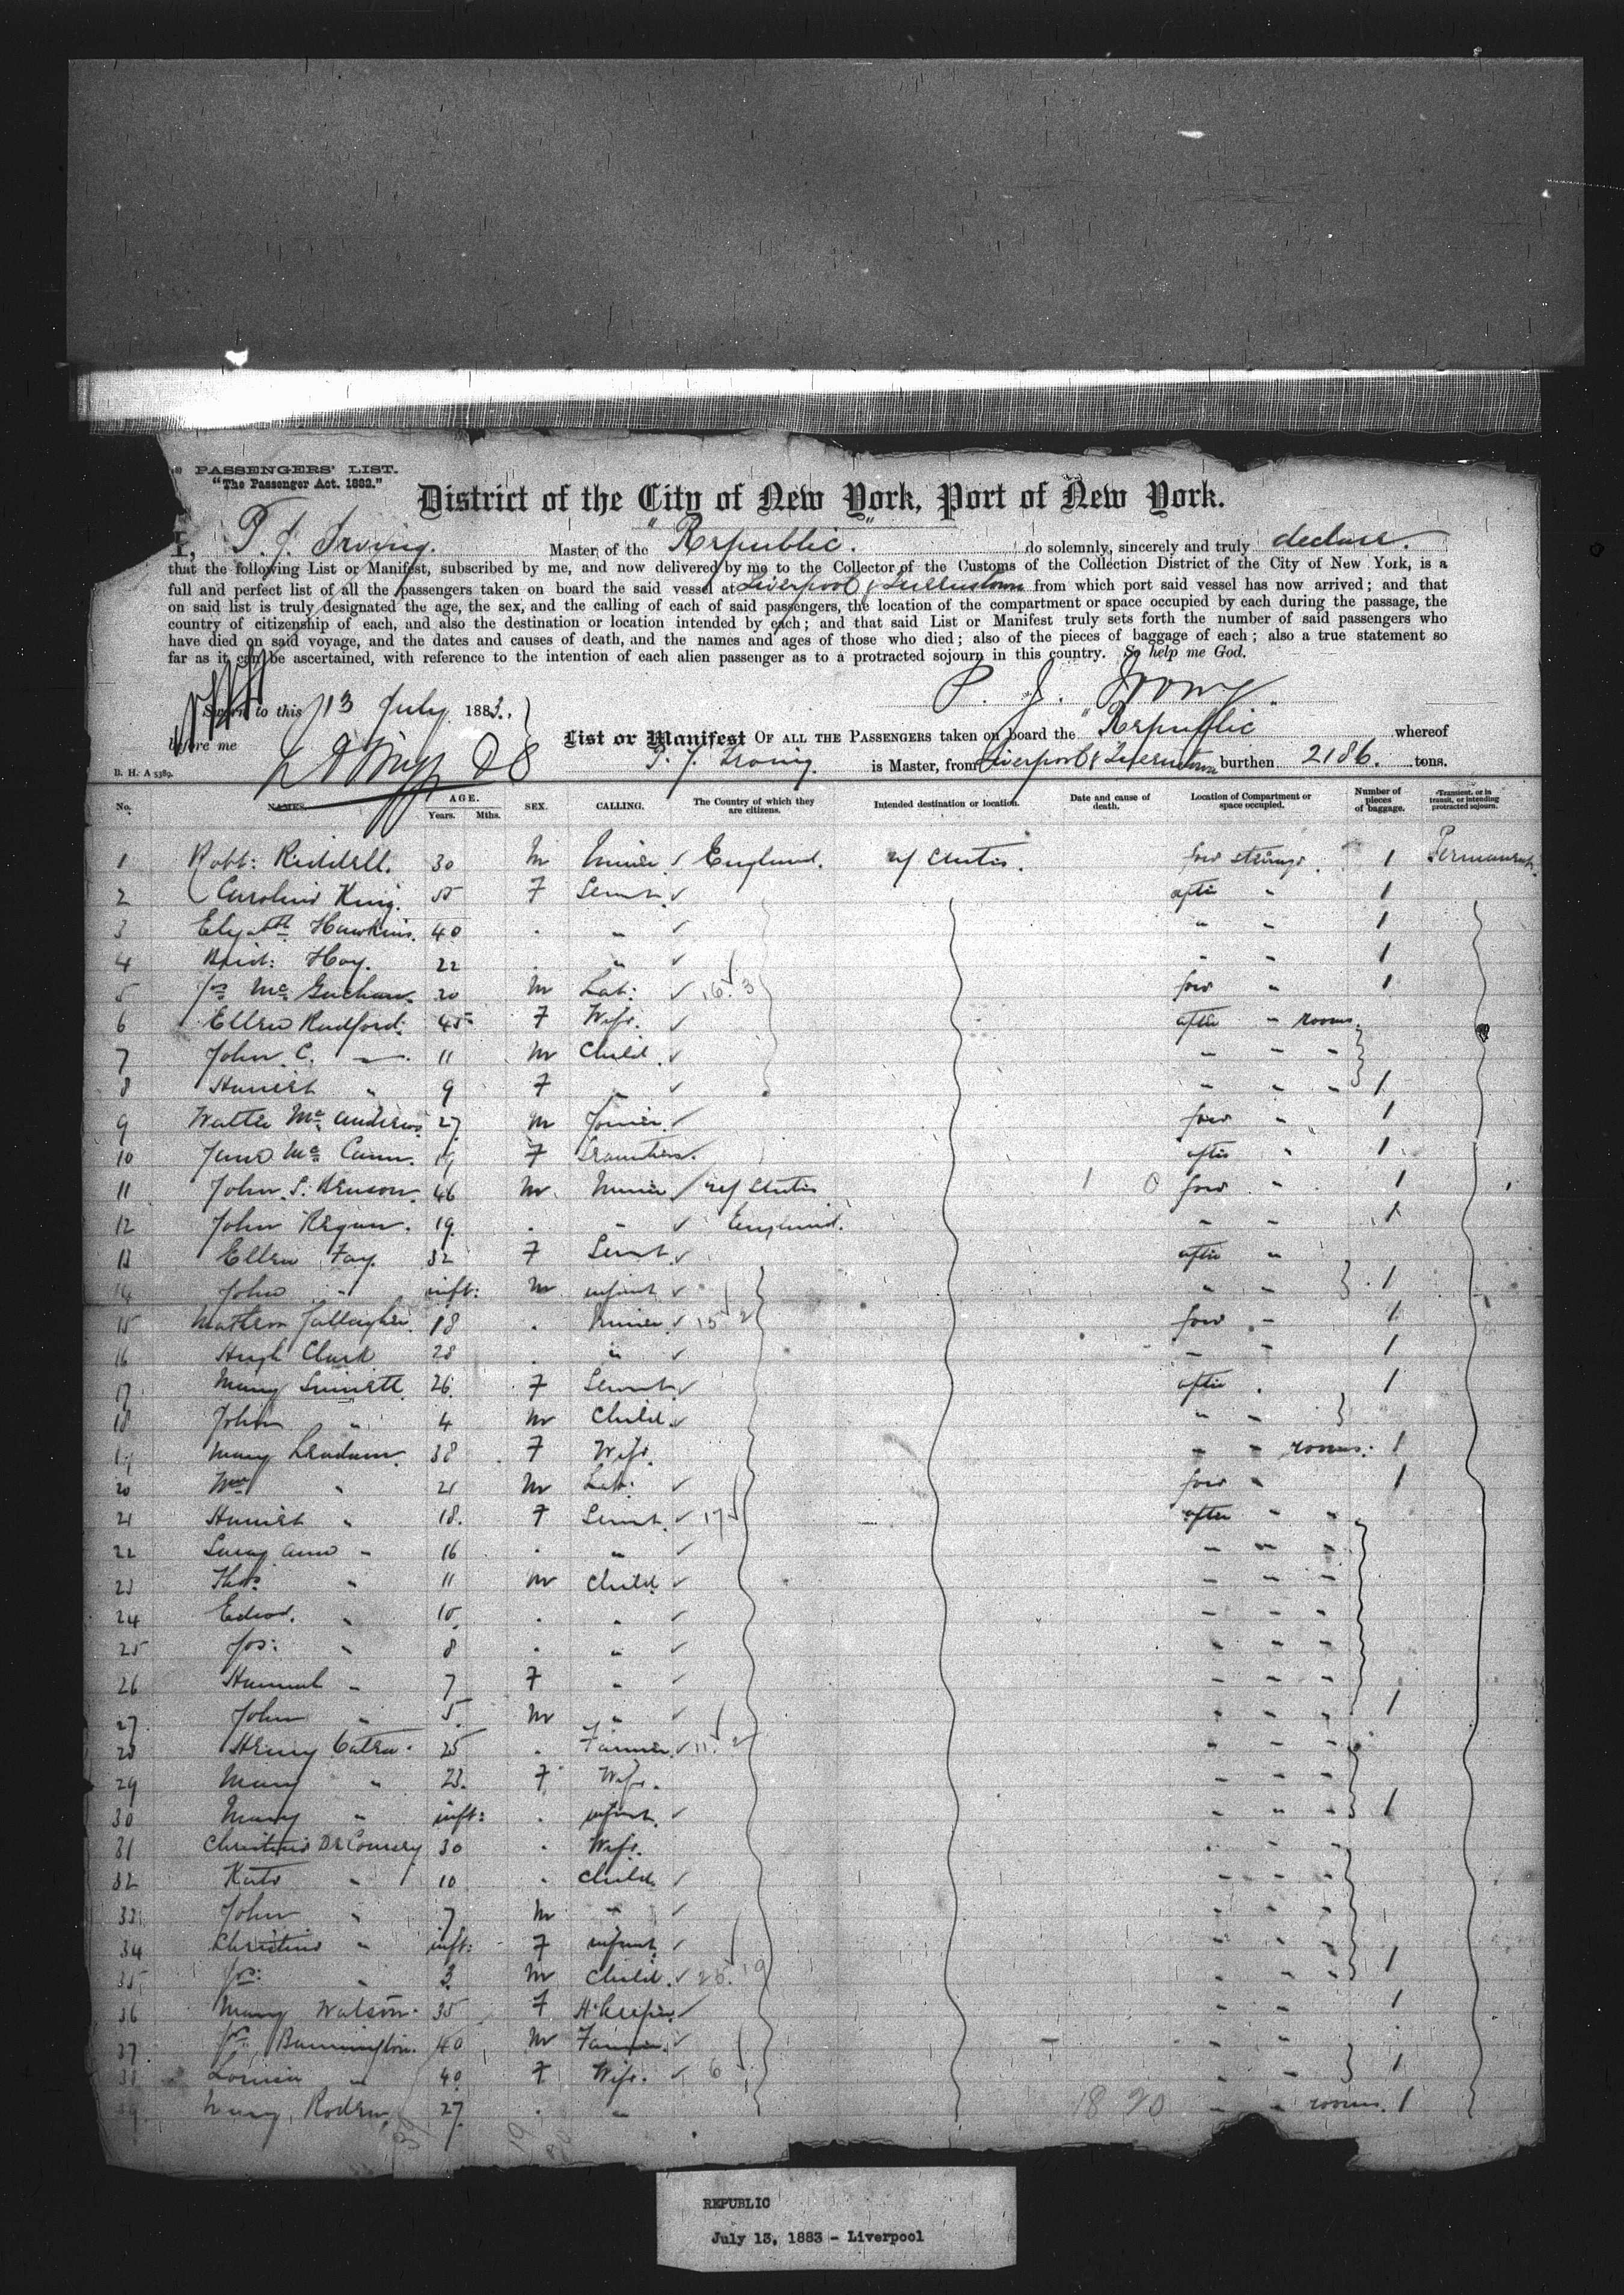 PASSENGERS' LIST.
"The Passenger Act. 1882."
District of the City of New York, Port of New York.
I, P. J. Irving. Master of the "Republic." do solemnly, sincerely and truly declare.
that the following List or Manifest, subscribed by me, and now delivered by me to the Collector of the Customs of the Collection District of the City of New York, is a
full and perfect list of all the passengers taken on board the said vessel at Liverpool & Queenstown from which port said vessel has now arrived; and that
on said list is truly designated the age, the sex, and the calling of each of said passengers, the location of the compartment or space occupied by each during the passage, the
country of citizenship of each, and also the destination or location intended by each; and that said List or Manifest truly sets forth the number of said passengers who
have died on said voyage, and the dates and causes of death, and the names and ages of those who died; also of the pieces of baggage of each; also a true statement so
far as it can be ascertained, with reference to the intention of each alien passenger as to a protracted sojourn in this country. So help me God.
P. J. Irving
Sworn to this 13 July 1883.
before me
List or Manifest OF ALL THE PASSENGERS taken on board the "Republic" whereof
P. J. Irving. is Master, from Liverpool & Queenstown burthen 2186. tons.
B. H. A 5389.
No. NAMES. AGE. Years. Mths. SEX. CALLING. The Country of which they are citizens. Intended destination or location. Date and cause of death. Location of Compartment or space occupied. Number of pieces of baggage. Transient, or in transit, or intending protracted sojourn.
1 Robt: Riddell. 30 M Miner England. 1 Permanent
2 Caroline King. 55 F Servt. after " 1
3 Elizabth Hawkins. 40 . " " " 1
4 Brid: Hoy. 22 . " " " 1
5 Jas Mc 20 M Lab: 16. 3 for'd " 1
6 Ellen Radford. 45 F Wife. after " rooms.
7 John C. " 11 M Child. " " "
8 Harriet " 9 F " " " " 1
9 Walter Mc Andrew 27 M Joiner. for'd " 1
10 Jane Mc Cann. F after " 1
11 John S. 46 M Miner for'd " 1
12 John Regan. 19 . " England. " " 1
13 Ellen Fay. 32 F Servt. after "
14 John " inft: M infant " " 1
15 Gallagher. 18 . Miner. 15 2 for'd " 1
16 Hugh Clark 28 . " " " 1
17 Mary 26. F Servt. after . 1
18 John " 4 M Child. " "
19 Mary 38 F Wife. " " rooms. 1
20 Wm " 21 M Lab: for'd " 1
21 Harriet " 18. F Servt. 17 after " "
22 Ann " 16 . " " " "
23 Thos " 11 M Child. " " "
24 Edwd. " 10. . " " " "
25 Jos: " 8 . " " " "
26 Hannah " 7 F " " " "
27 John " 5. M " " " " 1
28 Henry 25 . Farmer. 11. 2 " " "
29 Mary " 23. F Wife. " " "
30 Mary " inft: . infant. " " " 1
31 30 . Wife. " " "
32 Kate " 10 . Child. " " "
33 John " 7 M " " " "
34 Christina " inft: F infant. " " "
35 Jos: " 3. M Child. " " 1
36 Mary Watson. 35 F H.keeper " " 1
37 Bannington. 40 M Farmer. " "
38 Louisa " 40. F Wife. 6 " " 1
27. . " 18 20 " " rooms. 1
REPUBLIC
July 13, 1883 - Liverpool